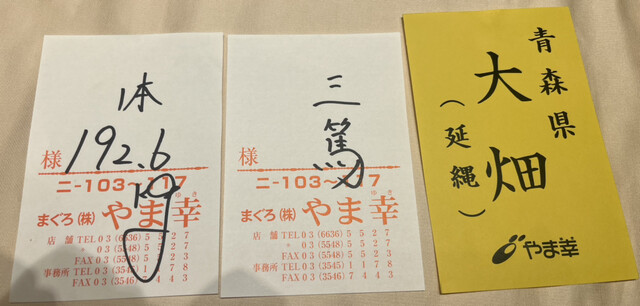 本
様
192.6
ニ-103~117
まぐろ(株)やま幸
ゆき
店 舗 TEL 03 (6636) 5 5 2 7
〃 03 (5548) 5 5 2 7
FAX 03 (5548) 5 5 2 3
事務所 TEL 03 (3545) 1 1 7 8
FAX 03 (3546) 5 4 4 3
三篤
様
ニ-103~117
まぐろ(株)やま幸
ゆき
店 舗 TEL 03 (6636) 5 5 2 7
〃 03 (5548) 5 5 2 7
FAX 03 (5548) 5 5 2 3
事務所 TEL 03 (3545) 1 1 7 8
FAX 03 (3546) 7 4 4 3
青森県
大畑
(延縄)
やま幸